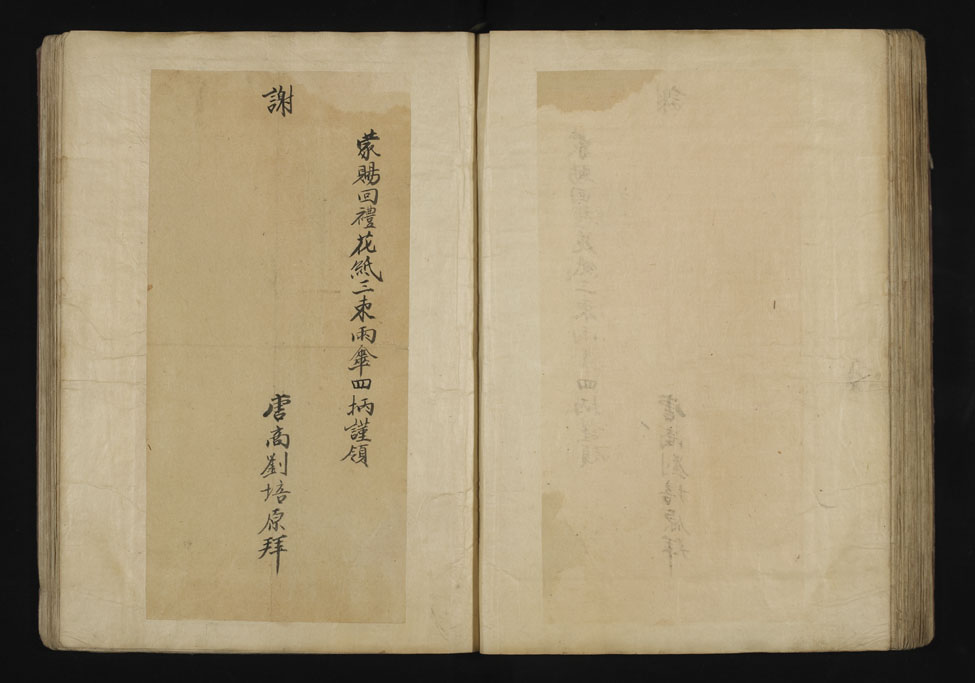 蒙賜回禮花紙三束雨傘四柄謹領
謝
唐商劉培原拜